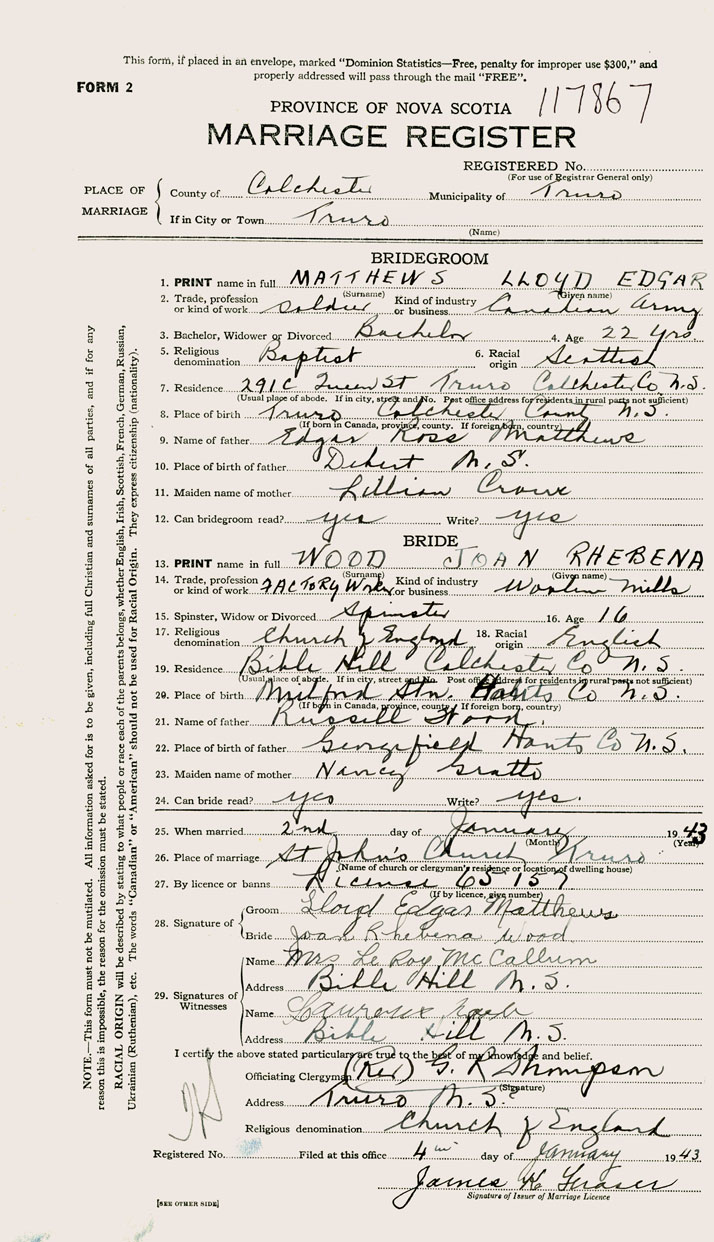 This form, if placed in an envelope, marked "Dominion Statistics—Free, penalty for improper use $300," and
properly addressed will pass through the mail "FREE".
FORM 2
117867
PROVINCE OF NOVA SCOTIA
MARRIAGE REGISTER
REGISTERED No.
(For use of Registrar General only)
PLACE OF MARRIAGE
County of Colchester Municipality of Truro
If in City or Town Truro
(Name)
BRIDEGROOM
1. PRINT name in full MATTHEWS LLOYD EDGAR
(Surname) (Given name)
2. Trade, profession or kind of work Soldier Kind of industry or business Canadian Army
3. Bachelor, Widower or Divorced Bachelor 4. Age 22 yrs.
5. Religious denomination Baptist 6. Racial origin Scottish
7. Residence 291C Queen St Truro Colchester Co N.S.
(Usual place of abode. If in city, street and No. Post office address for residents in rural parts not sufficient)
8. Place of birth Truro Colchester Count N.S.
(If born in Canada, province, county. If foreign born, country)
9. Name of father Edgar Ross Matthews
10. Place of birth of father Debert N.S.
11. Maiden name of mother Lillian
12. Can bridegroom read? yes Write? yes
BRIDE
13. PRINT name in full WOOD JOAN RHEBENA
(Surname) (Given name)
14. Trade, profession or kind of work FACTORY Work Kind of industry or business Woolen Mills
15. Spinster, Widow or Divorced Spinster 16. Age 16
17. Religious denomination Church of England 18. Racial origin English
19. Residence Bible Hill Colchester Co N.S.
(Usual place of abode. If in city, street and No. Post office address for residents in rural parts not sufficient)
20. Place of birth Milford Stn. Hants Co N.S.
(If born in Canada, province, county. If foreign born, country)
21. Name of father Russell Wood.
22. Place of birth of father Georgefield Hants Co N.S.
23. Maiden name of mother Nancy Gratto
24. Can bride read? yes Write? yes.
25. When married 2nd day of January 1943
(Month) (Year)
26. Place of marriage St John's Church Truro
(Name of church or clergyman's residence or location of dwelling house)
27. By licence or banns License 65157
(If by licence, give number)
28. Signature of
Groom Lloyd Edgar Matthews
Bride Joan Rhebena Wood
29. Signatures of Witnesses
Name Mrs Le Roy McCallum
Address Bible Hill N.S.
Name
Address Bible Hill N.S.
I certify the above stated particulars are true to the best of my knowledge and belief.
Officiating Clergyman (Rev) G. R Thompson
(Signature)
Address Truro N.S.
Religious denomination Church of England
Registered No. Filed at this office 4th day of January 1943
James K Fraser
Signature of Issuer of Marriage Licence
[SEE OTHER SIDE]
NOTE.—This form must not be mutilated. All information asked for is to be given, including full Christian and surnames of all parties, and if for any
reason this is impossible, the reason for the omission must be stated.
RACIAL ORIGIN will be described by stating to what people or race each of the parents belongs, whether English, Irish, Scottish, French, German, Russian,
Ukrainian (Ruthenian), etc. The words "Canadian" or "American" should not be used for Racial Origin. They express citizenship (nationality).